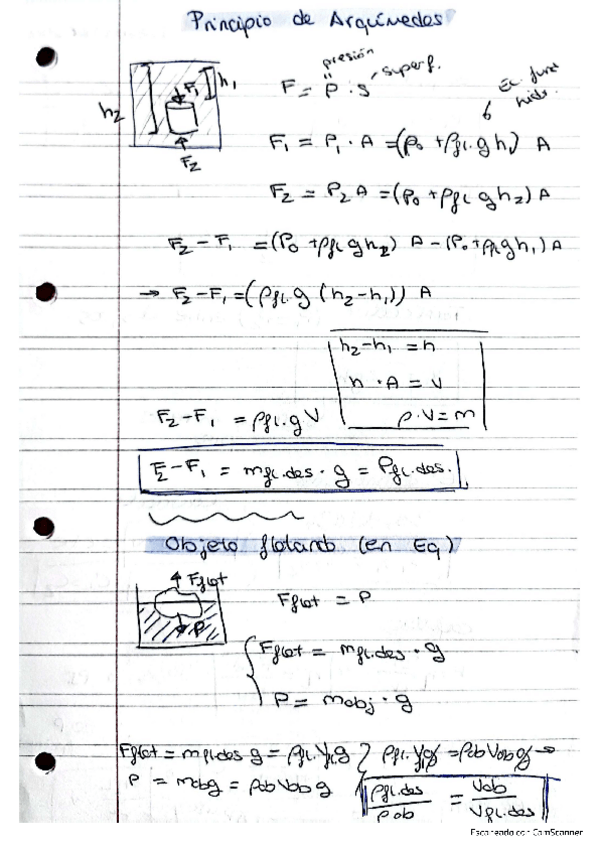 Principio de Arquímedes
presión
F = p · s superf.
Ec. fund hidr.
F₁ h₁
h₂
F₂
F₁ = P₁ · A = (P₀ + ρfl. g h₁) A
F₂ = P₂ A = (P₀ + ρfl g h₂) A
F₂ - F₁ = (P₀ + ρfl g h₂) A - (P₀ + ρfl g h₁) A
→ F₂ - F₁ = (ρfl. g (h₂ - h₁)) A
h₂ - h₁ = h
h · A = V
ρ · V = m
F₂ - F₁ = ρfl. g V
F₂ - F₁ = mfl.des · g = Pfl.des.
Objeto flotando (en Eq)
Fflot
P
Fflot = P
Fflot = mfl.des · g
P = mobj · g
Fflot = mfl.des g = ρfl. Vfl g } ρfl. Vfl g = ρob Vob g →
P = mob g = ρob Vob g
ρfl.des / ρob = Vob / Vfl.des
Escaneado con CamScanner